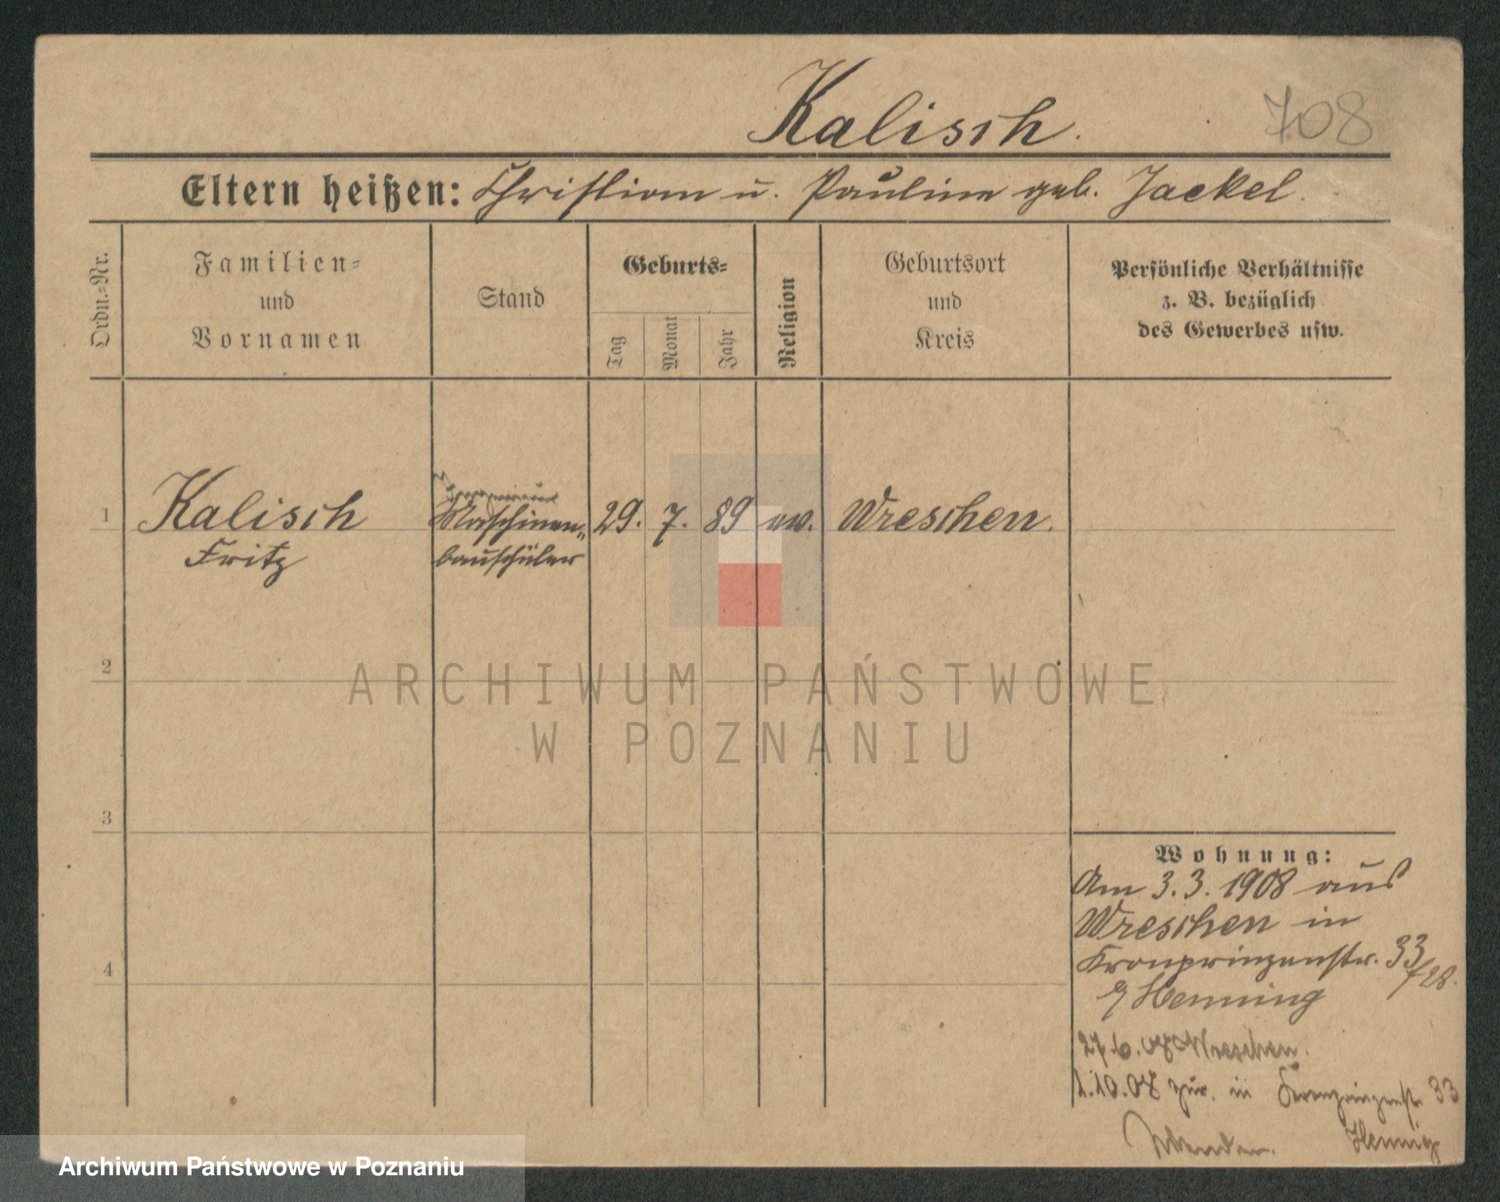 Kalisch.
708
Eltern heißen: Christian u. Pauline geb. Jackel.
Ordn.-Nr.
Familien-
und
Vornamen
Stand
Geburts-
Tag
Monat
Jahr
Religion
Geburtsort
und
Kreis
Persönliche Verhältnisse
z. B. bezüglich
des Gewerbes usw.
1
Kalisch
Fritz
Maschinen-
bauschüler
29. 7. 89 ev. Wreschen.
2
ARCHIWUM PAŃSTWOWE
W POZNANIU
3
4
Wohnung:
Am 3.3.1908 aus
Wreschen in
Kronprinzenstr. 33
/28.
Henning
27.6.08 Wreschen.
1.10.08 zur. in Kronprinzenstr. 33
Hennig
Archiwum Państwowe w Poznaniu